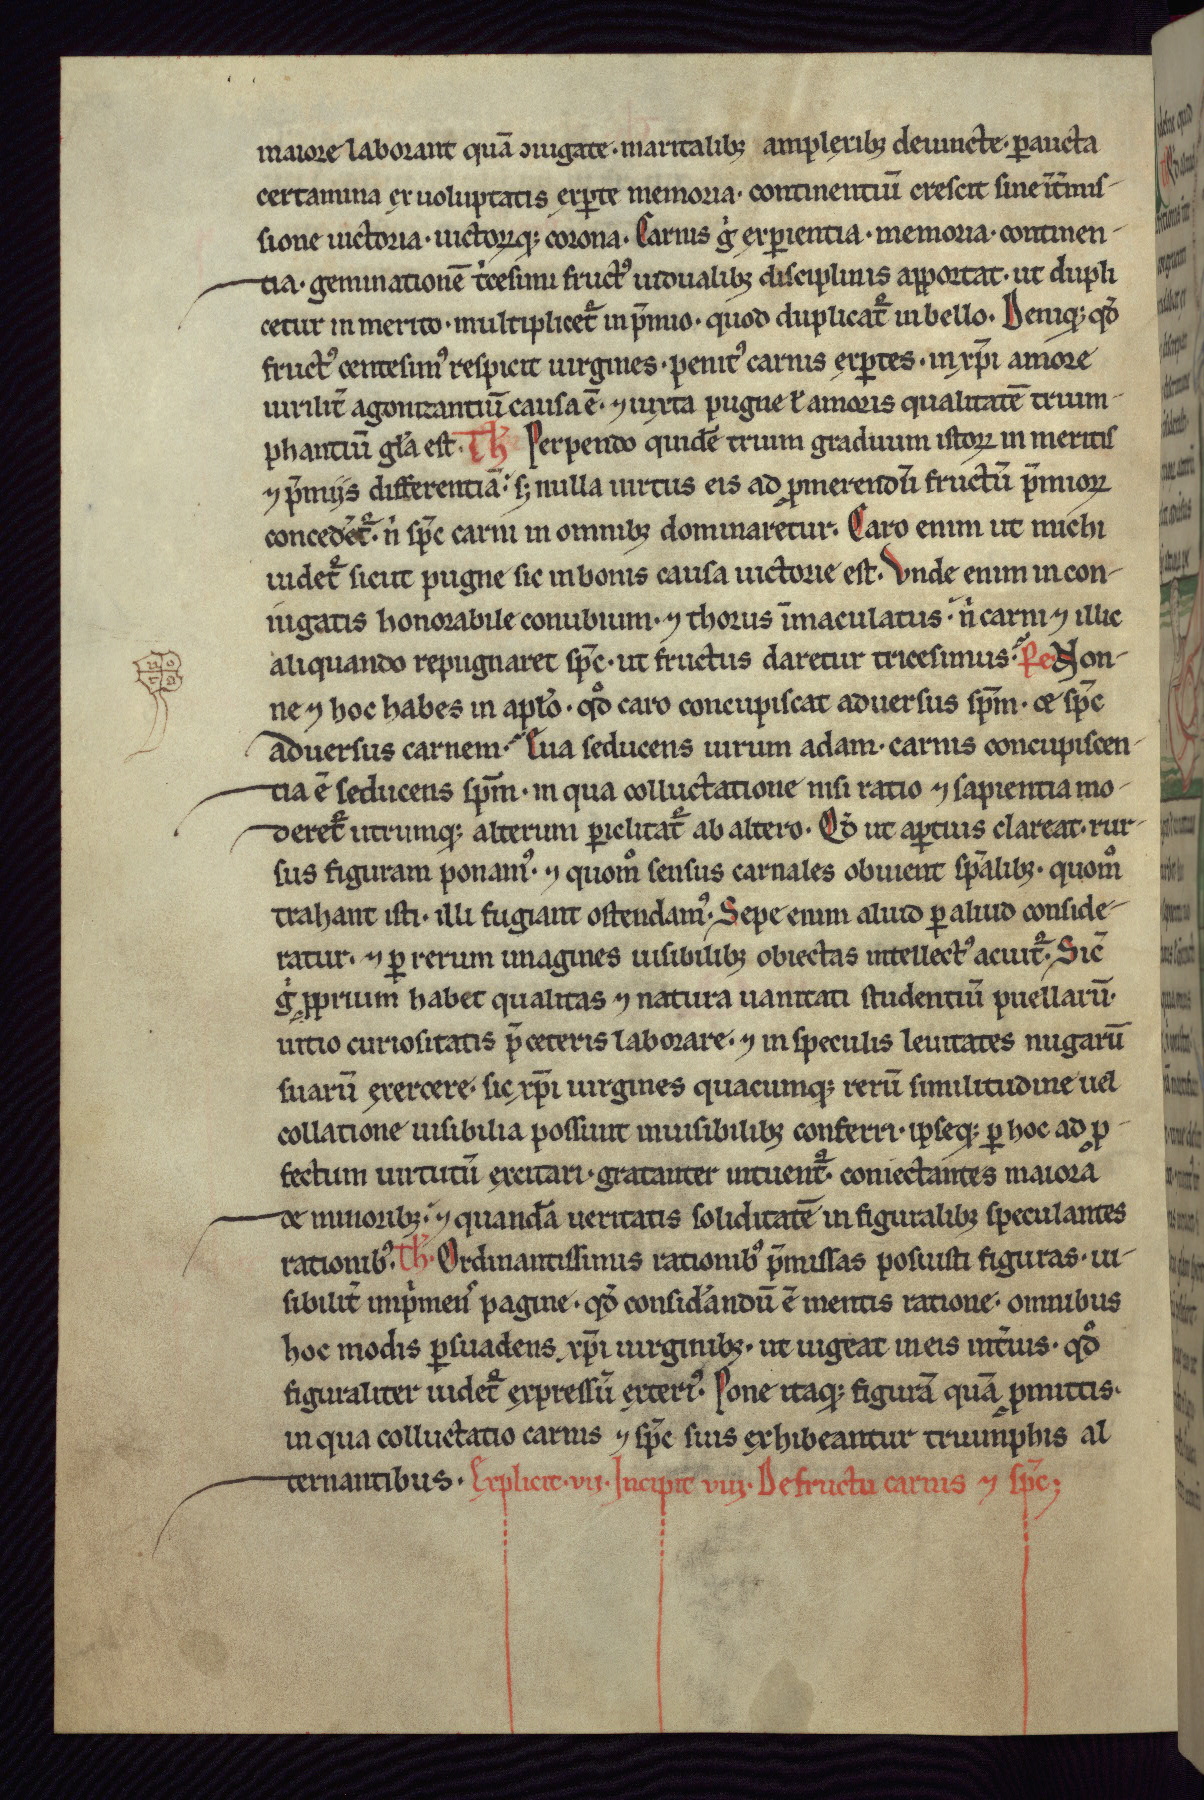 maiore laborant quā ꝯiugate · maritalibꝫ amplexibꝫ deuincte · ꝑaucta
certamina ex uoluptatis exꝑte memoria · continentiū crescit sine īt̄mis-
sione uictoria · uictorꝝqꝫ corona · Carnis gͥ experientia · memoria · continen-
tia · geminationē t̄cesimi fructꝰ uidualibꝫ disciplinis apportat · ut dupli
cetur in merito · multiplicet᷑ in p̄mio · quod duplicat᷑ in bello · Deniqꝫ qd̄
fructꝰ centesimꝰ respicit uirgines · penitꝰ carnis exꝑtes · in xp̄i amore
uirilit̄ agonizantiū causa ē · ⁊ iuxta pugne ł amoris qualitatē trium-
phantiū gła est · Th̄ Perpendo quidē trium graduum istoꝝ in meritis
⁊ p̄miis differentiā · sꝫ nulla uirtus eis ad ꝓmerendū fructū p̄mioꝝ
concedēt᷑ · nͥ sp̄c carni in omnibꝫ dominaretur · Caro enim ut michi
uidet᷑ sicut pugne sic in bonis causa uictorie est · Vnde enim in con-
iugatis honorabile conubium · ⁊ thorus īmaculatus · nͥ carni ⁊ illic
aliquando repugnaret sp̄c · ut fructus daretur tricesimus · Pe Non-
ne ⁊ hoc habes in apło · qd̄ caro concupiscat aduersus sp̄m · ⁊ sp̄c
aduersus carnem · Eua seducens uirum adam · carnis concupiscen-
tia ē seducens sp̄m · in qua colluctatione nisi ratio ⁊ sapientia mo-
deret᷑ utrumqꝫ alterum ꝑiclitat᷑ ab altero · Qd̄ ut aꝑtius clareat · rur-
sus figuram ponamꝰ · ⁊ quomͦ sensus carnales obuient sp̄alibꝫ · quomͦ
trahant isti · illi fugiant ostendamꝰ · Sepe enim aliud ꝑ aliud conside-
ratur · ⁊ ꝑ rerum imagines uisibilibꝫ obiectas intellectꝰ acuit᷑ · Sic̄
gͥ ꝓprium habet qualitas ⁊ natura uanitati studentiū puellarū ·
uitio curiositatis p̄ ceteris laborare · ⁊ in speculis leuitates nugarū
suarū exercere · sic xp̄i uirgines quacumqꝫ rerū similitudine uel
collatione uisibilia possunt inuisibilibꝫ conferri · ipseqꝫ ꝑ hoc ad ꝓ-
fectum uirtutū excitari · gratanter intuent᷑ · coniectantes maiora
de minoribꝫ · ⁊ quandā ueritatis soliditatē in figuralibꝫ speculantes
rationibꝰ · Th̄ · Ordinantissimus rationibꝰ p̄missas posuisti figuras · ui-
sibilit̄ imp̄mens pagine · qd̄ considandū ē mentis ratione · omnibus
hoc modis ꝑsuadens xp̄i uirginibꝫ · ut uigeat in eis int̄ius · qd̄
figuraliter uidet᷑ expressū exterꝰ · Pone itaqꝫ figurā quā ꝓmittis ·
in qua colluctatio carnis ⁊ sp̄c suis exhibeantur triumphis al
ternantibus · Explicit · vii · Incipit viii · De fructu carnis ⁊ sp̄c ;